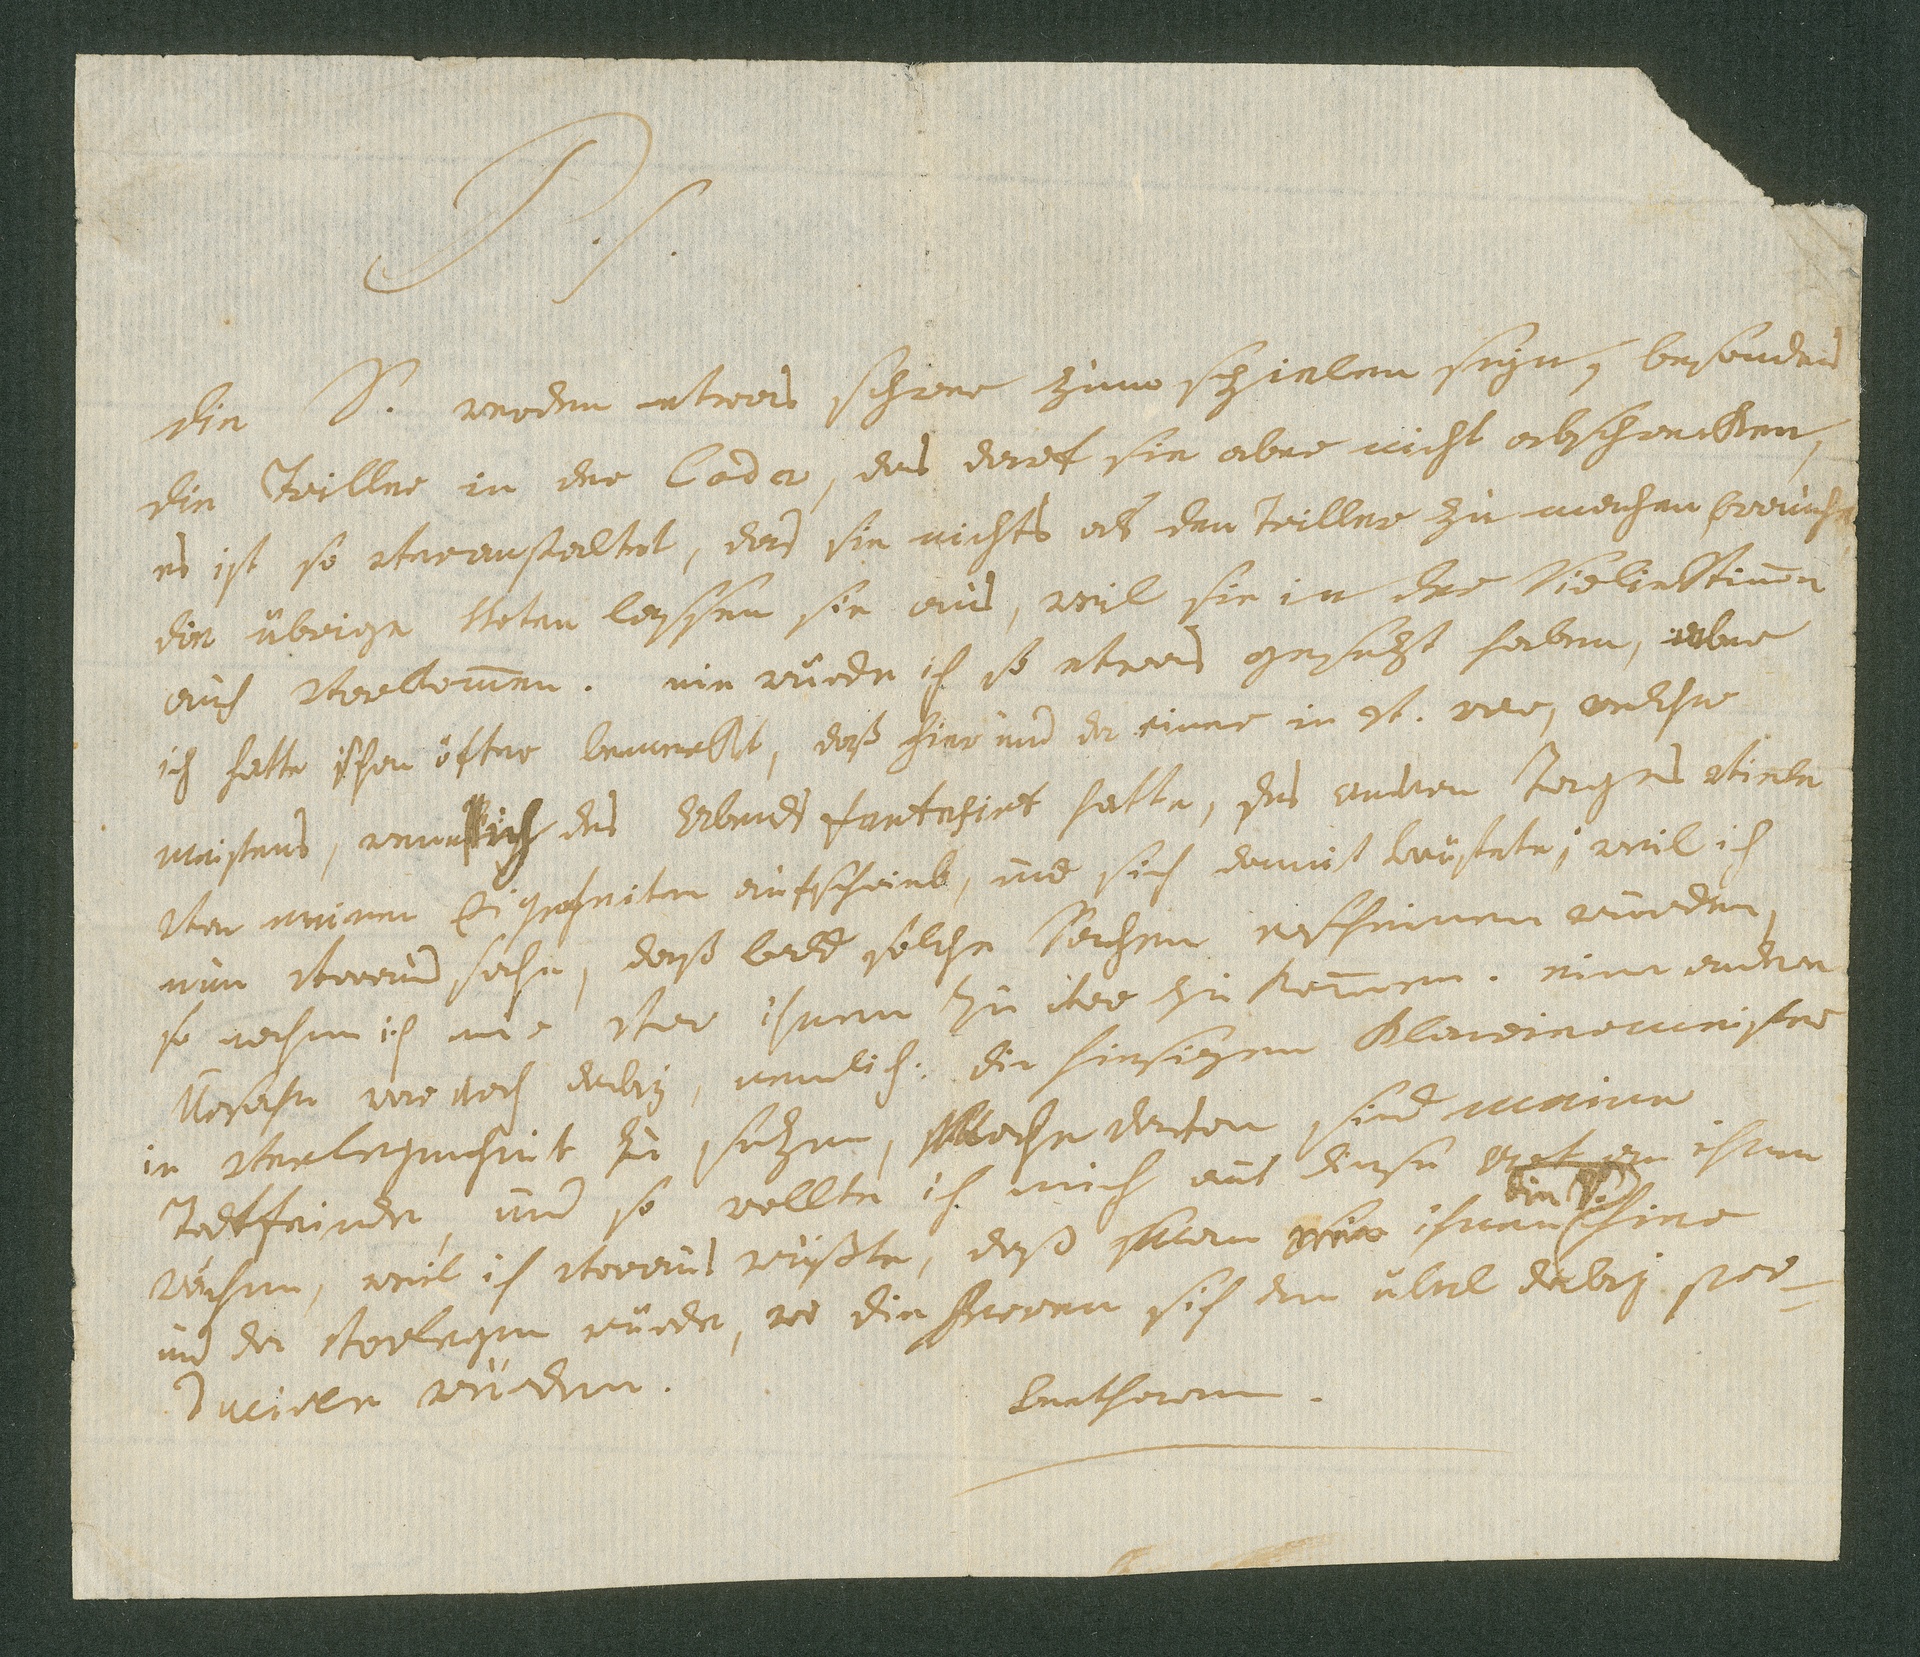 P.S.
die V. werden etwas schwer zum spielen seyn, besonders
die Triller in der Coda, das darf sie aber nicht abschrecken,
es ist so veranstaltet, das sie nichts als den Triller zu machen brauchen,
die übrige Noten lassen sie aus, weil sie in der Violinstimme
auch vorkommen. nie würde ich so etwas gesezt haben, aber
ich hatte schon öfter bemerkt, daß hier und da einer in V. war, welcher
meistens, wenn ich des Abends fantasirt hatte, des andern Tages viele
von meinen Eigenheiten aufschrieb, und sich damit brüstete; weil ich
nun voraus sahe, daß bald solche Sachen erscheinen würden,
so nahm ich mir vor ihnen zu vor zu kommen. eine andere
Ursache war noch dabey, nemlich: die hiesigen Klawiermeister
in verlegenheit zu sezen, manche davon sind meine
Todtfeinde, und so wollte ich mich auf diese art an ihnen
rächen, weil ich voraus wuste, daß man ihnen die V. hier
und da vorlegen würde, wo die Herren sich dann übel dabey pro-
duciren würden.
Beethowen.